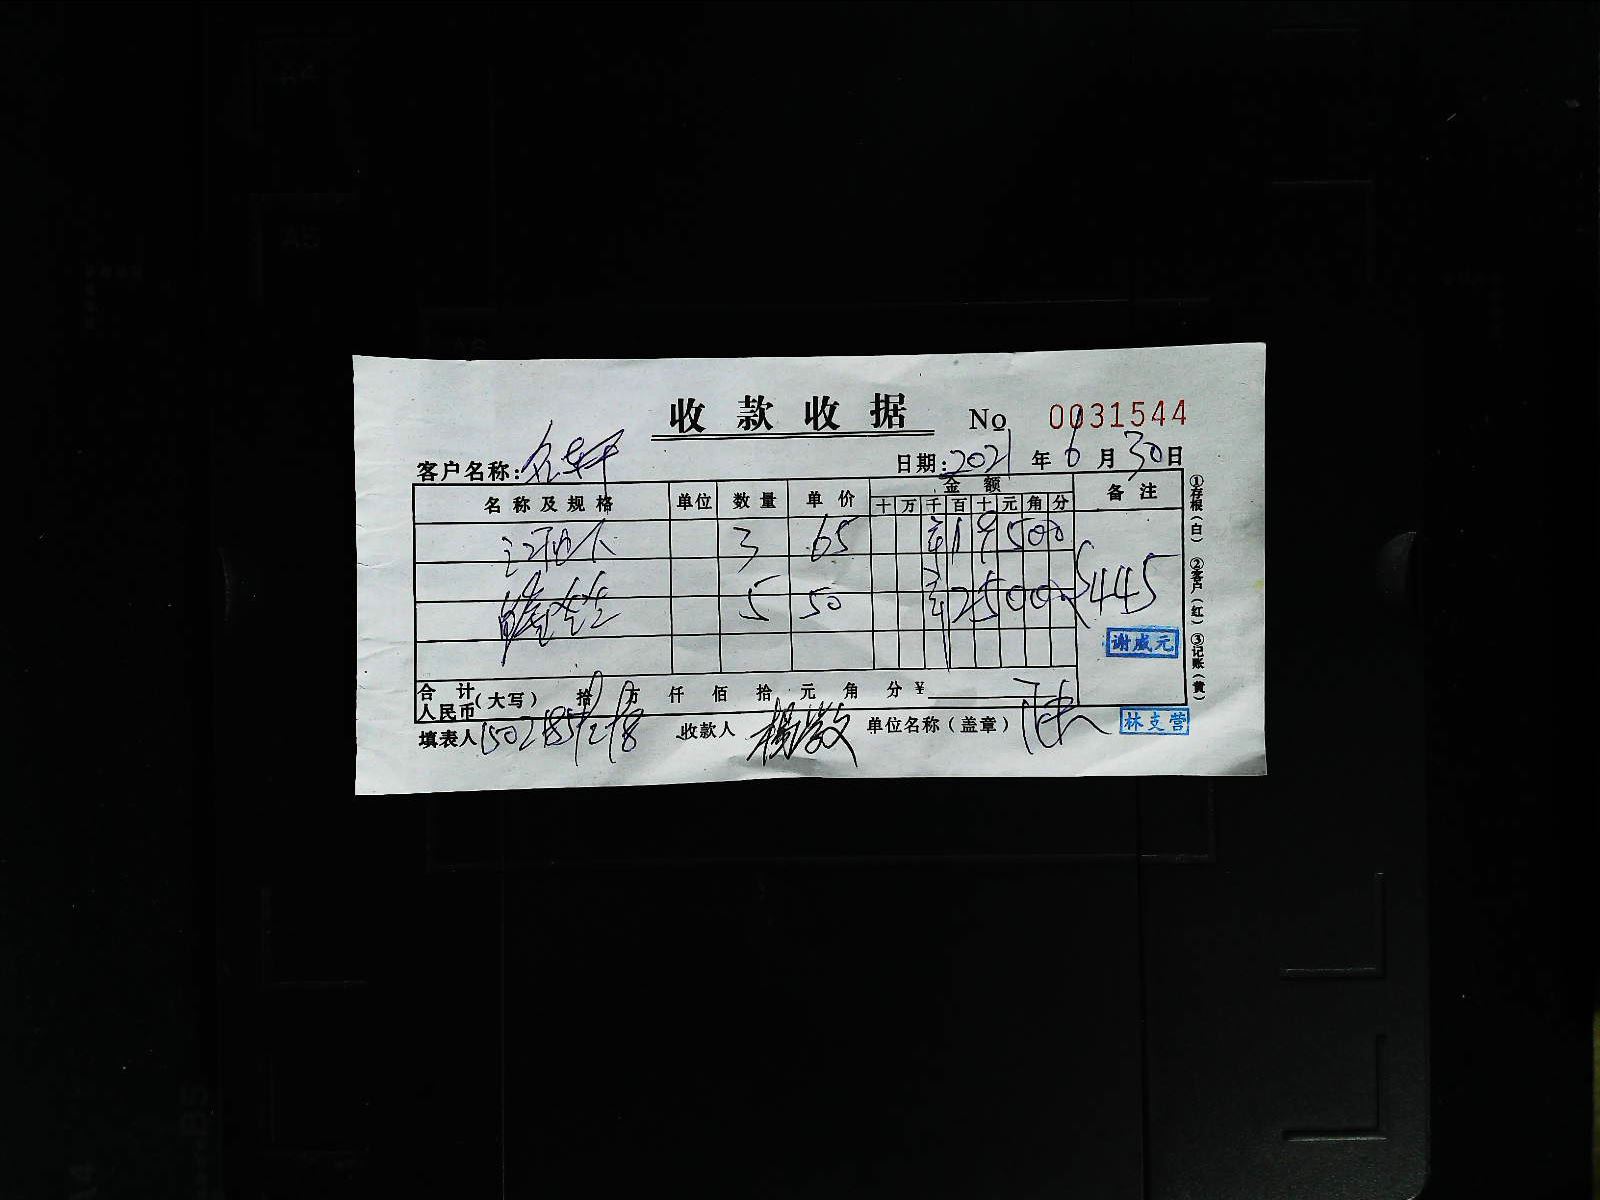 收款收据 No 0031544
客户名称: 日期: 2021 年 6 月 30 日
名称及规格 单位 数量 单价 金额 备注
十 万 千 百 十 元 角 分
3 65 1 9 5 0 0
5 50 2 5 0 0 0 445
谢威元
合计人民币 (大写) 拾 万 仟 佰 拾 元 角 分 ¥
填表人 收款人 单位名称(盖章) 林支营
①存根(白) ②客户(红) ③记账(黄)